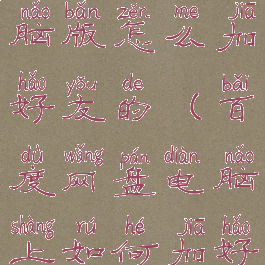 nǎo bǎn zěn me jiā
脑版怎么加
hǎo yǒu de bǎi
好友的（百
dù wǎng pán diàn nǎo
度网盘电脑
shàng rú hé jiā hǎo
上如何加好